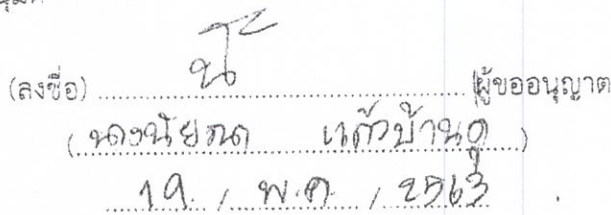 (ลงชื่อ) ........ ผู้ขออนุญาต
( นาง แก้วบ้าน )
19 / พ.ค. / 2563